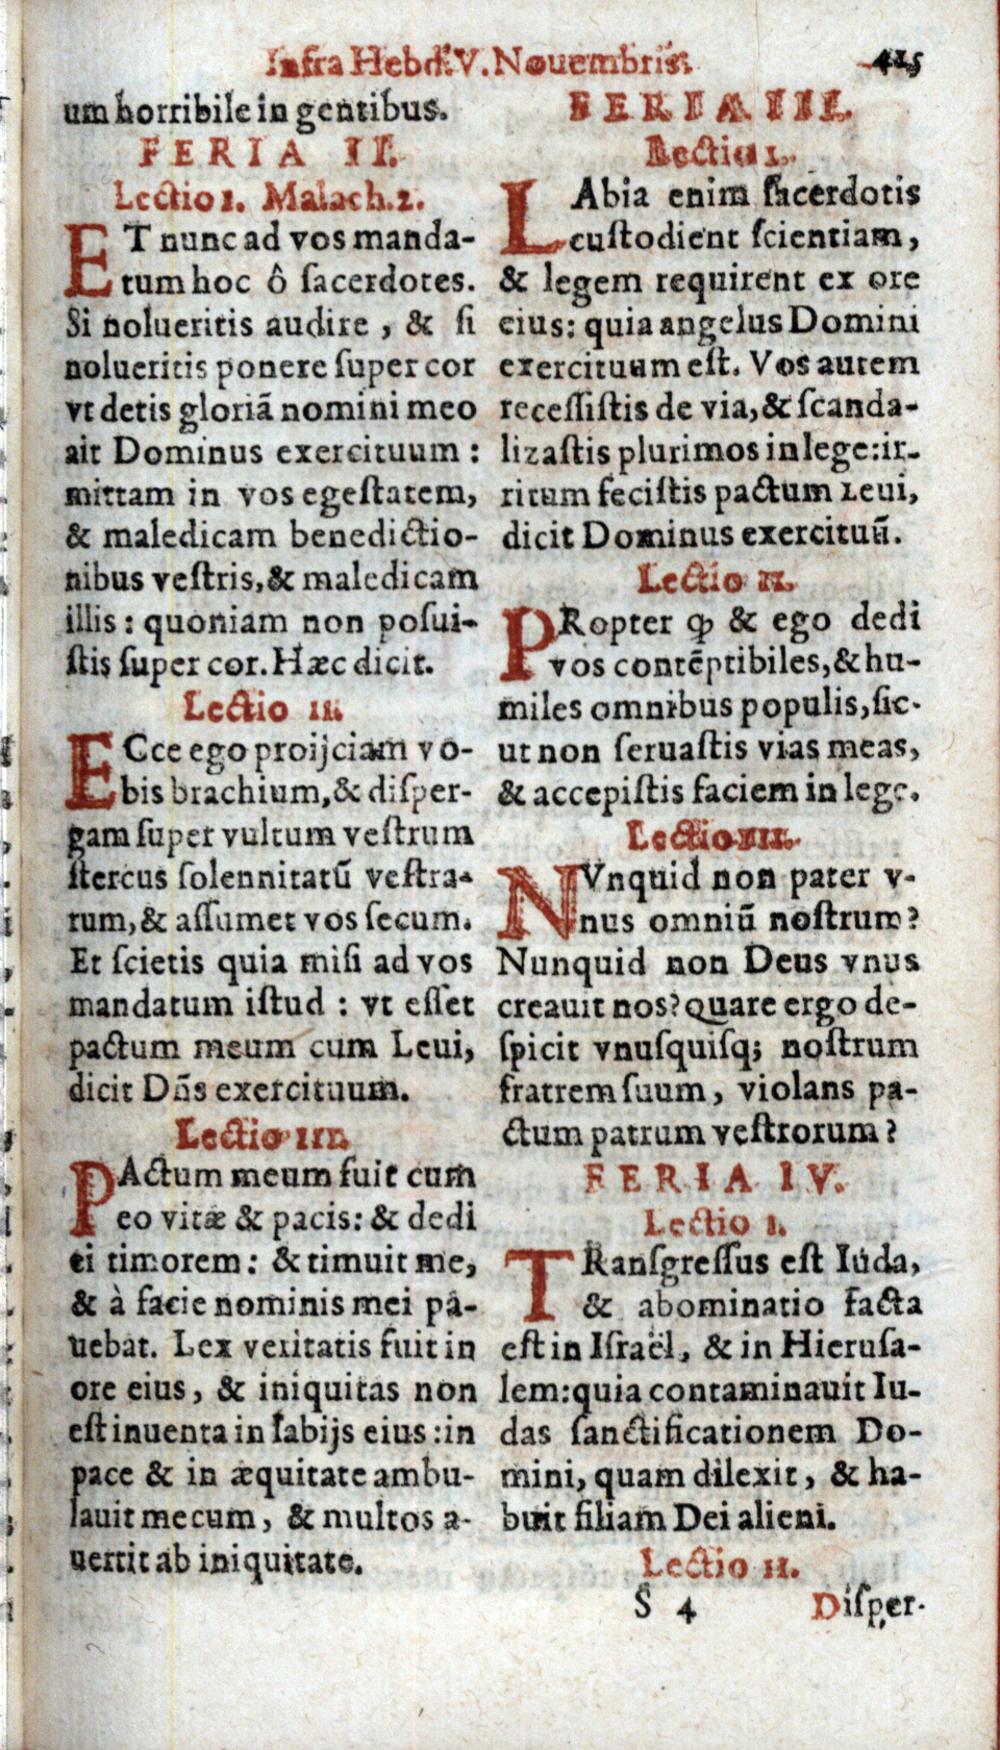 Infra Hebd. V. Nouembris. 415
um horribile in gentibus.
FERIA II.
Lectio 1. Malach. 2.
ET nunc ad vos manda-
tum hoc ô ſacerdotes.
Si nolueritis audire, & ſi
nolueritis ponere ſuper cor
vt detis gloriã nomini meo
ait Dominus exercituum:
mittam in vos egeſtatem,
& maledicam benedictio-
nibus veſtris, & maledicam
illis: quoniam non poſui-
ſtis ſuper cor. Hæc dicit.
Lectio II.
ECce ego proijciam vo-
bis brachium, & diſper-
gam ſuper vultum veſtrum
ſtercus ſolennitatũ veſtra-
rum, & aſſumet vos ſecum.
Et ſcietis quia miſi ad vos
mandatum iſtud: vt eſſet
pactum meum cum Leui,
dicit Dñs exercituum.
Lectio III.
PActum meum fuit cum
eo vitæ & pacis: & dedi
ei timorem: & timuit me,
& à facie nominis mei pa-
uebat. Lex veritatis fuit in
ore eius, & iniquitas non
eſt inuenta in labijs eius: in
pace & in æquitate ambu-
lauit mecum, & multos a-
uertit ab iniquitate.
FERIA III.
Lectio 1.
LAbia enim ſacerdotis
cuſtodient ſcientiam,
& legem requirent ex ore
eius: quia angelus Domini
exercituum eſt. Vos autem
receſſiſtis de via, & ſcanda-
lizaſtis plurimos in lege: ir-
ritum feciſtis pactum Leui,
dicit Dominus exercituũ.
Lectio II.
PRopter ꝙ & ego dedi
vos contẽptibiles, & hu-
miles omnibus populis, ſic-
ut non ſeruaſtis vias meas,
& accepiſtis faciem in lege.
Lectio III.
NVnquid non pater v-
nus omniũ noſtrum?
Nunquid non Deus vnus
creauit nos? Quare ergo de-
ſpicit vnuſquiſq; noſtrum
fratrem ſuum, violans pa-
ctum patrum veſtrorum?
FERIA IV.
Lectio 1.
TRanſgreſſus eſt Iuda,
& abominatio facta
eſt in Iſraël, & in Hieruſa-
lem: quia contaminauit Iu-
das ſanctificationem Do-
mini, quam dilexit, & ha-
buit filiam Dei alieni.
Lectio II.
S 4 Diſper-